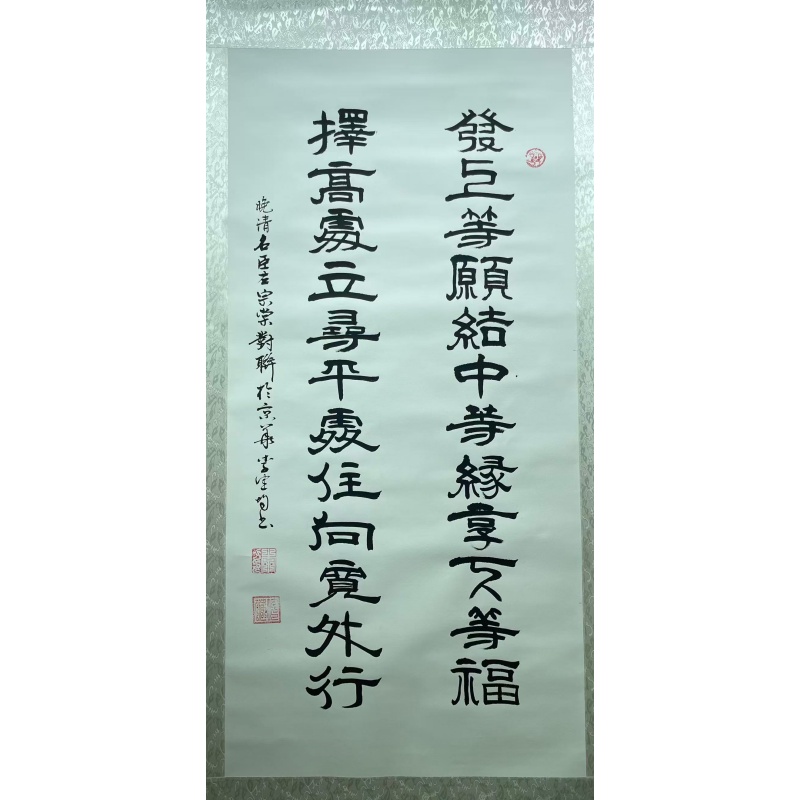 發上等願結中等緣享下等福
擇高處立尋平處住向寬外行
晚清名臣左宗棠對聯於京華書